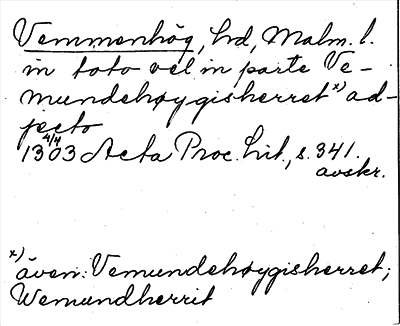 Vemmenhög, hd, Malm. l.
in toto vel in parte Ve-
mundehøygisherret x) ad-
jecto
4/4
1303 Acta Proc. lit., s. 341.
avskr.
x)
även: Vemundehøygisherret;
Wemundherrit